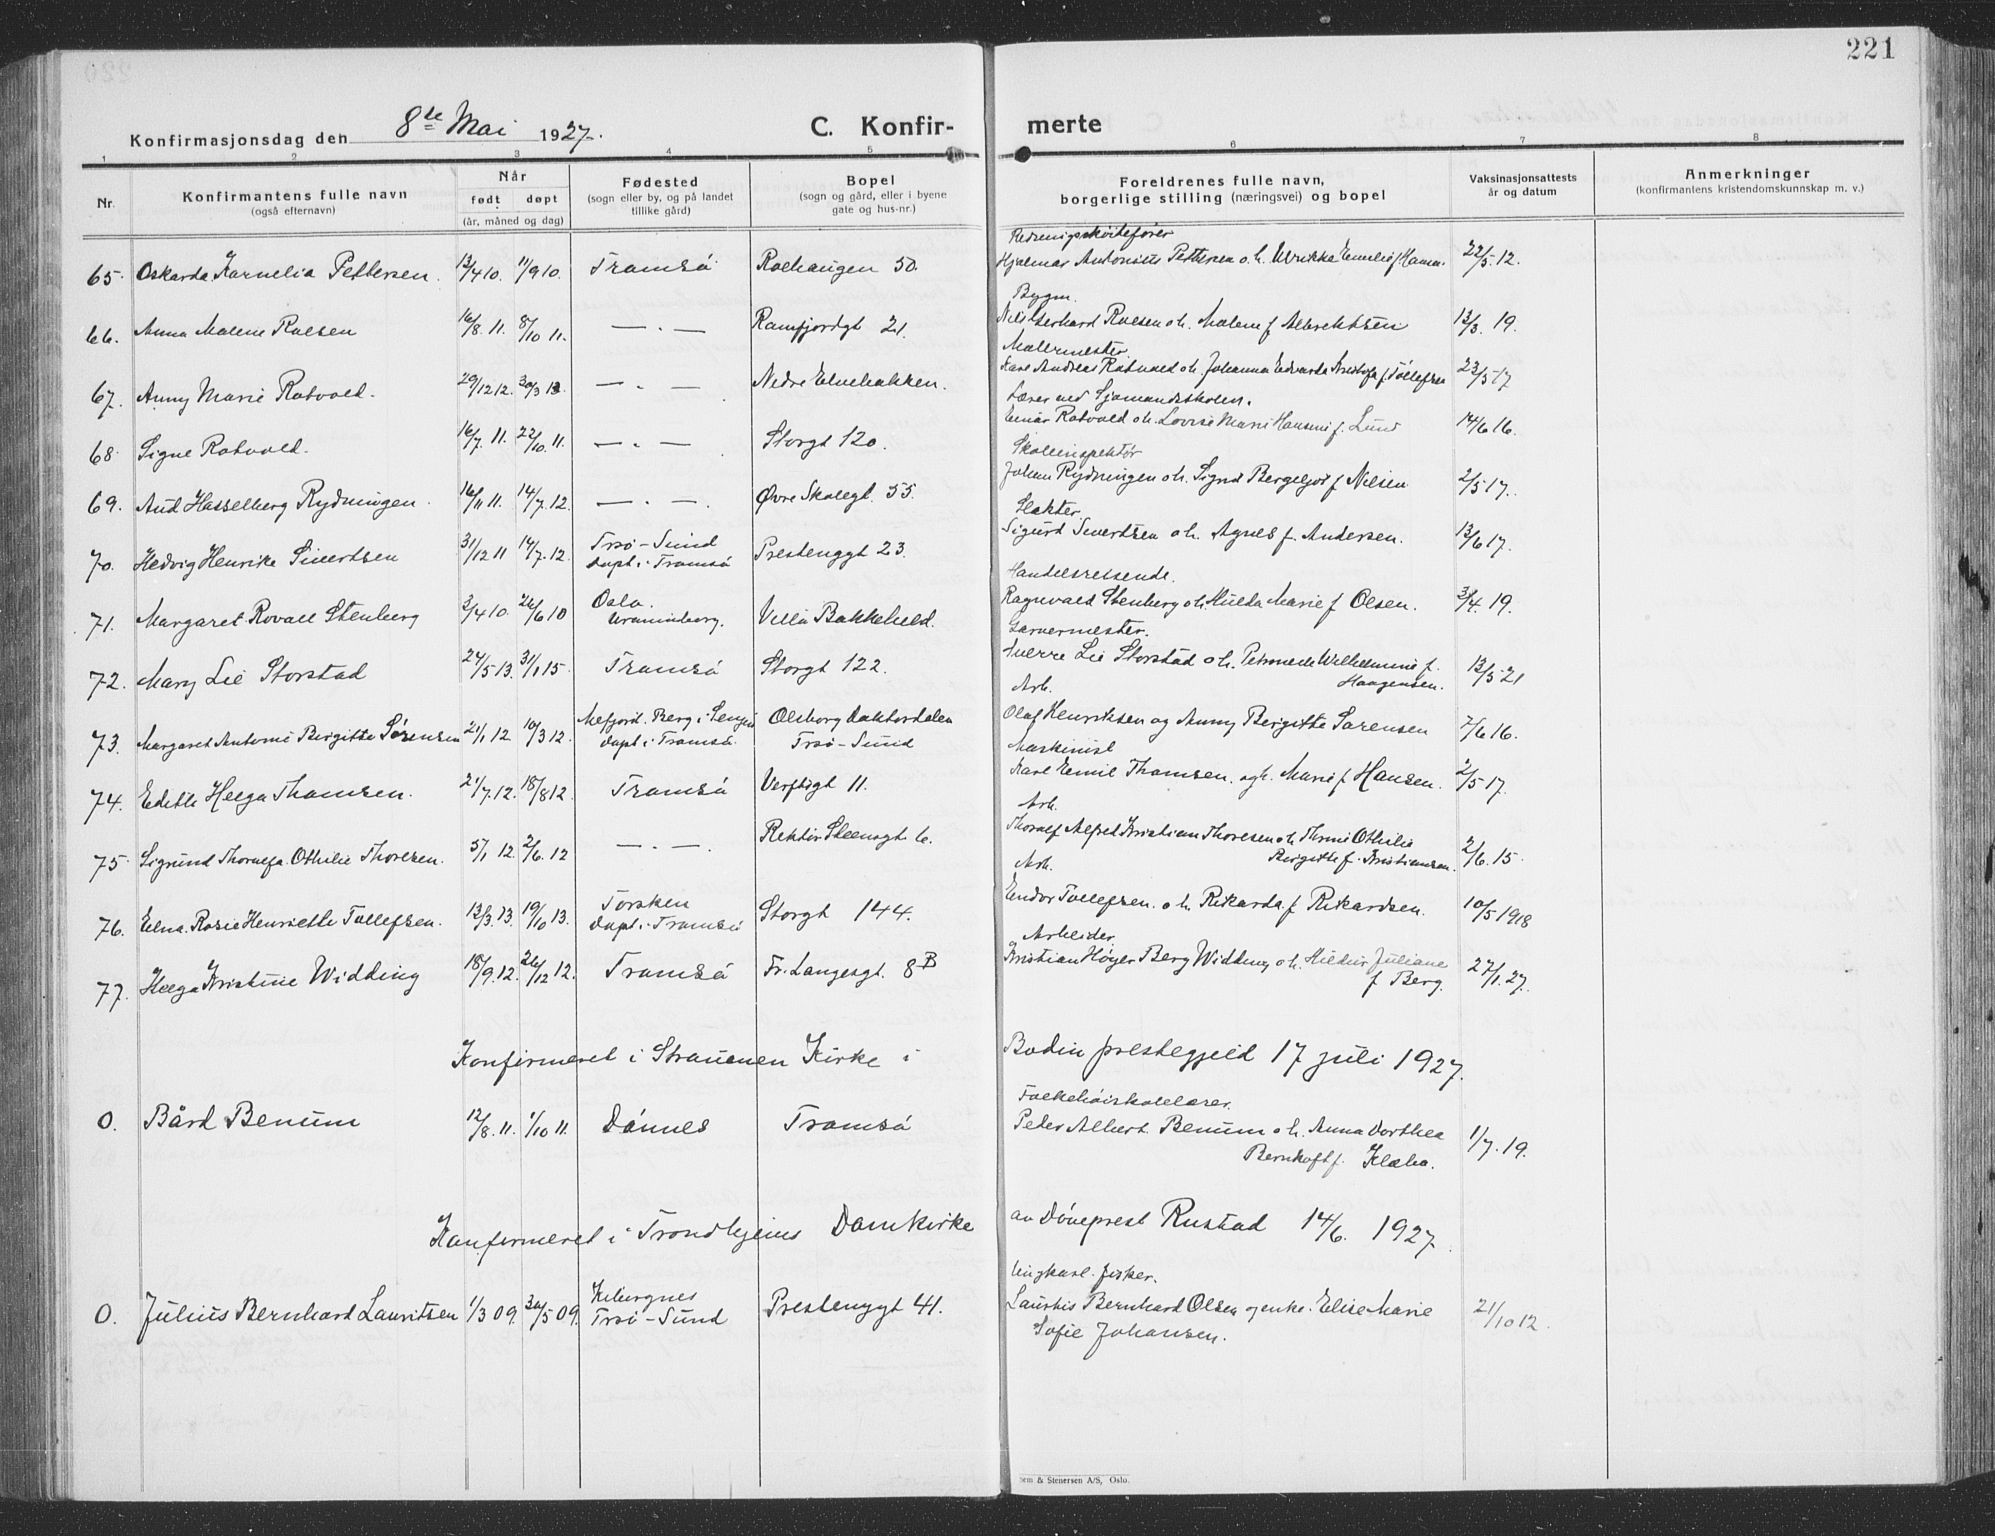 221
Konfirmasjonsdag den 8de Mai 1927.
C. Konfir-
merte
1 2 3 4 5 6 7 8
Nr.
Konfirmantens fulle navn
(også efternavn)
Når
født døpt
(år, måned og dag)
Fødested
(sogn eller by, og på landet
tillike gård)
Bopel
(sogn og gård, eller i byene
gate og hus-nr.)
Foreldrenes fulle navn,
borgerlige stilling (næringsvei) og bopel
Vaksinasjonsattests
år og datum
Anmerkninger
(konfirmantens kristendomskunnskap m. v.)
Redningsskøitefører
65. Oskarda Kornelia Pettersen. 13/4 10. 11/9 10. Tromsö Rolhaugen 50. Hjalmar Antonius Pettersen o.h. Ulrikke Emelie f Hansen. 22/5. 12.
Bygm.
66. Anna Malene Roesen 16/8. 11. 8/10 11. — . — Ramfjordgt 21. Nils Gerhard Roesen o.h. Malene f Albrektsen 13/3. 19.
Malermester.
67. Anny Marie Rotvold. 29/12 12. 30/3 13 — . — Nedre Elvebakken. Karl Andreas Rotvold o.h. Johanna Edvarda Kristofa f Tollefsen 23/5 17
Lærer ved Sjømandsskolen.
68. Signe Rotvold. 16/7. 11. 22/10. 11. — . — Storgt 120. Einar Rotvold o.h. Lovise Marie Hansine f. Lund 14/6 16.
Skoleinspektør
69. Aud Hasselberg Rydningen. 16/11 11. 14/7. 12. — . — Øvre Skolegt. 55. Johan Rydningen o.h. Signe Bergljot f Nilsen 2/5 17.
Slakter.
70. Hedvig Henrike Sivertsen 31/12 11 14/7. 12. Trsø-Sund Prestenggt 23. Sigurd Sivertsen o.h. Agnes f. Andersen. 13/6 17.
døpt i Tromsö
Handelsreisende.
71. Margaret Rovall Stenberg 3/4 10. 26/6 10 Oslo. Villa Bakkeheld. Ragnvald Stenberg o.h. Hulda Marie f Olsen. 3/4. 19.
Uranienborg.
Garvermester.
72. Mary Lie Storstad 24/5 13. 31/1 15. Tromsö Storgt 122. Sverre Lie Storstad o.h. Petronele Wilhelmine f. 13/5 21
Haagensen.
Arb.
73. Margaret Antonie Birgitte Sörensen 21/1 12 10/3 12. Mefjord. Berg i Senjen Olsborg Doktordalen Olaf Henriksen og Anny Birgitte Sørensen 7/6 16.
døpt i Tromsö. Trsø-Sund
Maskinist
74. Edith Helga Thomsen. 21/7. 12. 18/8 12. Tromsö Verftsgt 11. Karl Emil Thomsen. og h. Marie f Hansen. 2/5 17.
Arb.
75. Sigrund Thoralfa Othilie Thoresen. 5/1 12. 2/6. 12 — . — Rektor Steensgt 6. Thoralf Alfred Kristian Thoresen o.h. Thomie Othilie 2/6. 15.
Birgitte f. Kristiansen.
Arb.
76. Elna Rosie Henriette Tollefsen. 13/3. 13. 19/10 13. Torsken Storgt 144. Endor Tollefsen. o.h. Rikarda f Rikardsen. 10/5 1918
Døpt i Tromsö
Arbeider
77. Helga Kristine Widding 18/9. 12. 26/12 12. Tromsö Fr. Langesgt. 8B Kristian Høyer Berg Widding o.h. Hildur Juliane 27/1. 27.
f Berg.
Konfirmeret i Straumen Kirke i Bodin prestegjeld 17 juli 1927.
Folkehöiskolelærer.
0. Bård Benum 12/8. 11. 1/10 11. Dönnes Tromsö Peder Albert Benum o.h. Anna Dorthea 1/7. 19.
Bernhoft f. Klæbo.
Konfirmeret i Trondhjems Domkirke av Döveprest Rustad 14/6. 1927.
Ungkarl. fisker.
0. Julius Bernhard Lauritsen 1/3 09. 30/5 09. Kibergnes Prestenggt 41. Lauritz Bernhard Olsen og enke. Elise Marie 21/10 12.
Trsø-Sund Sofie Johansen.
Sem & Stenersen A/S, Oslo.